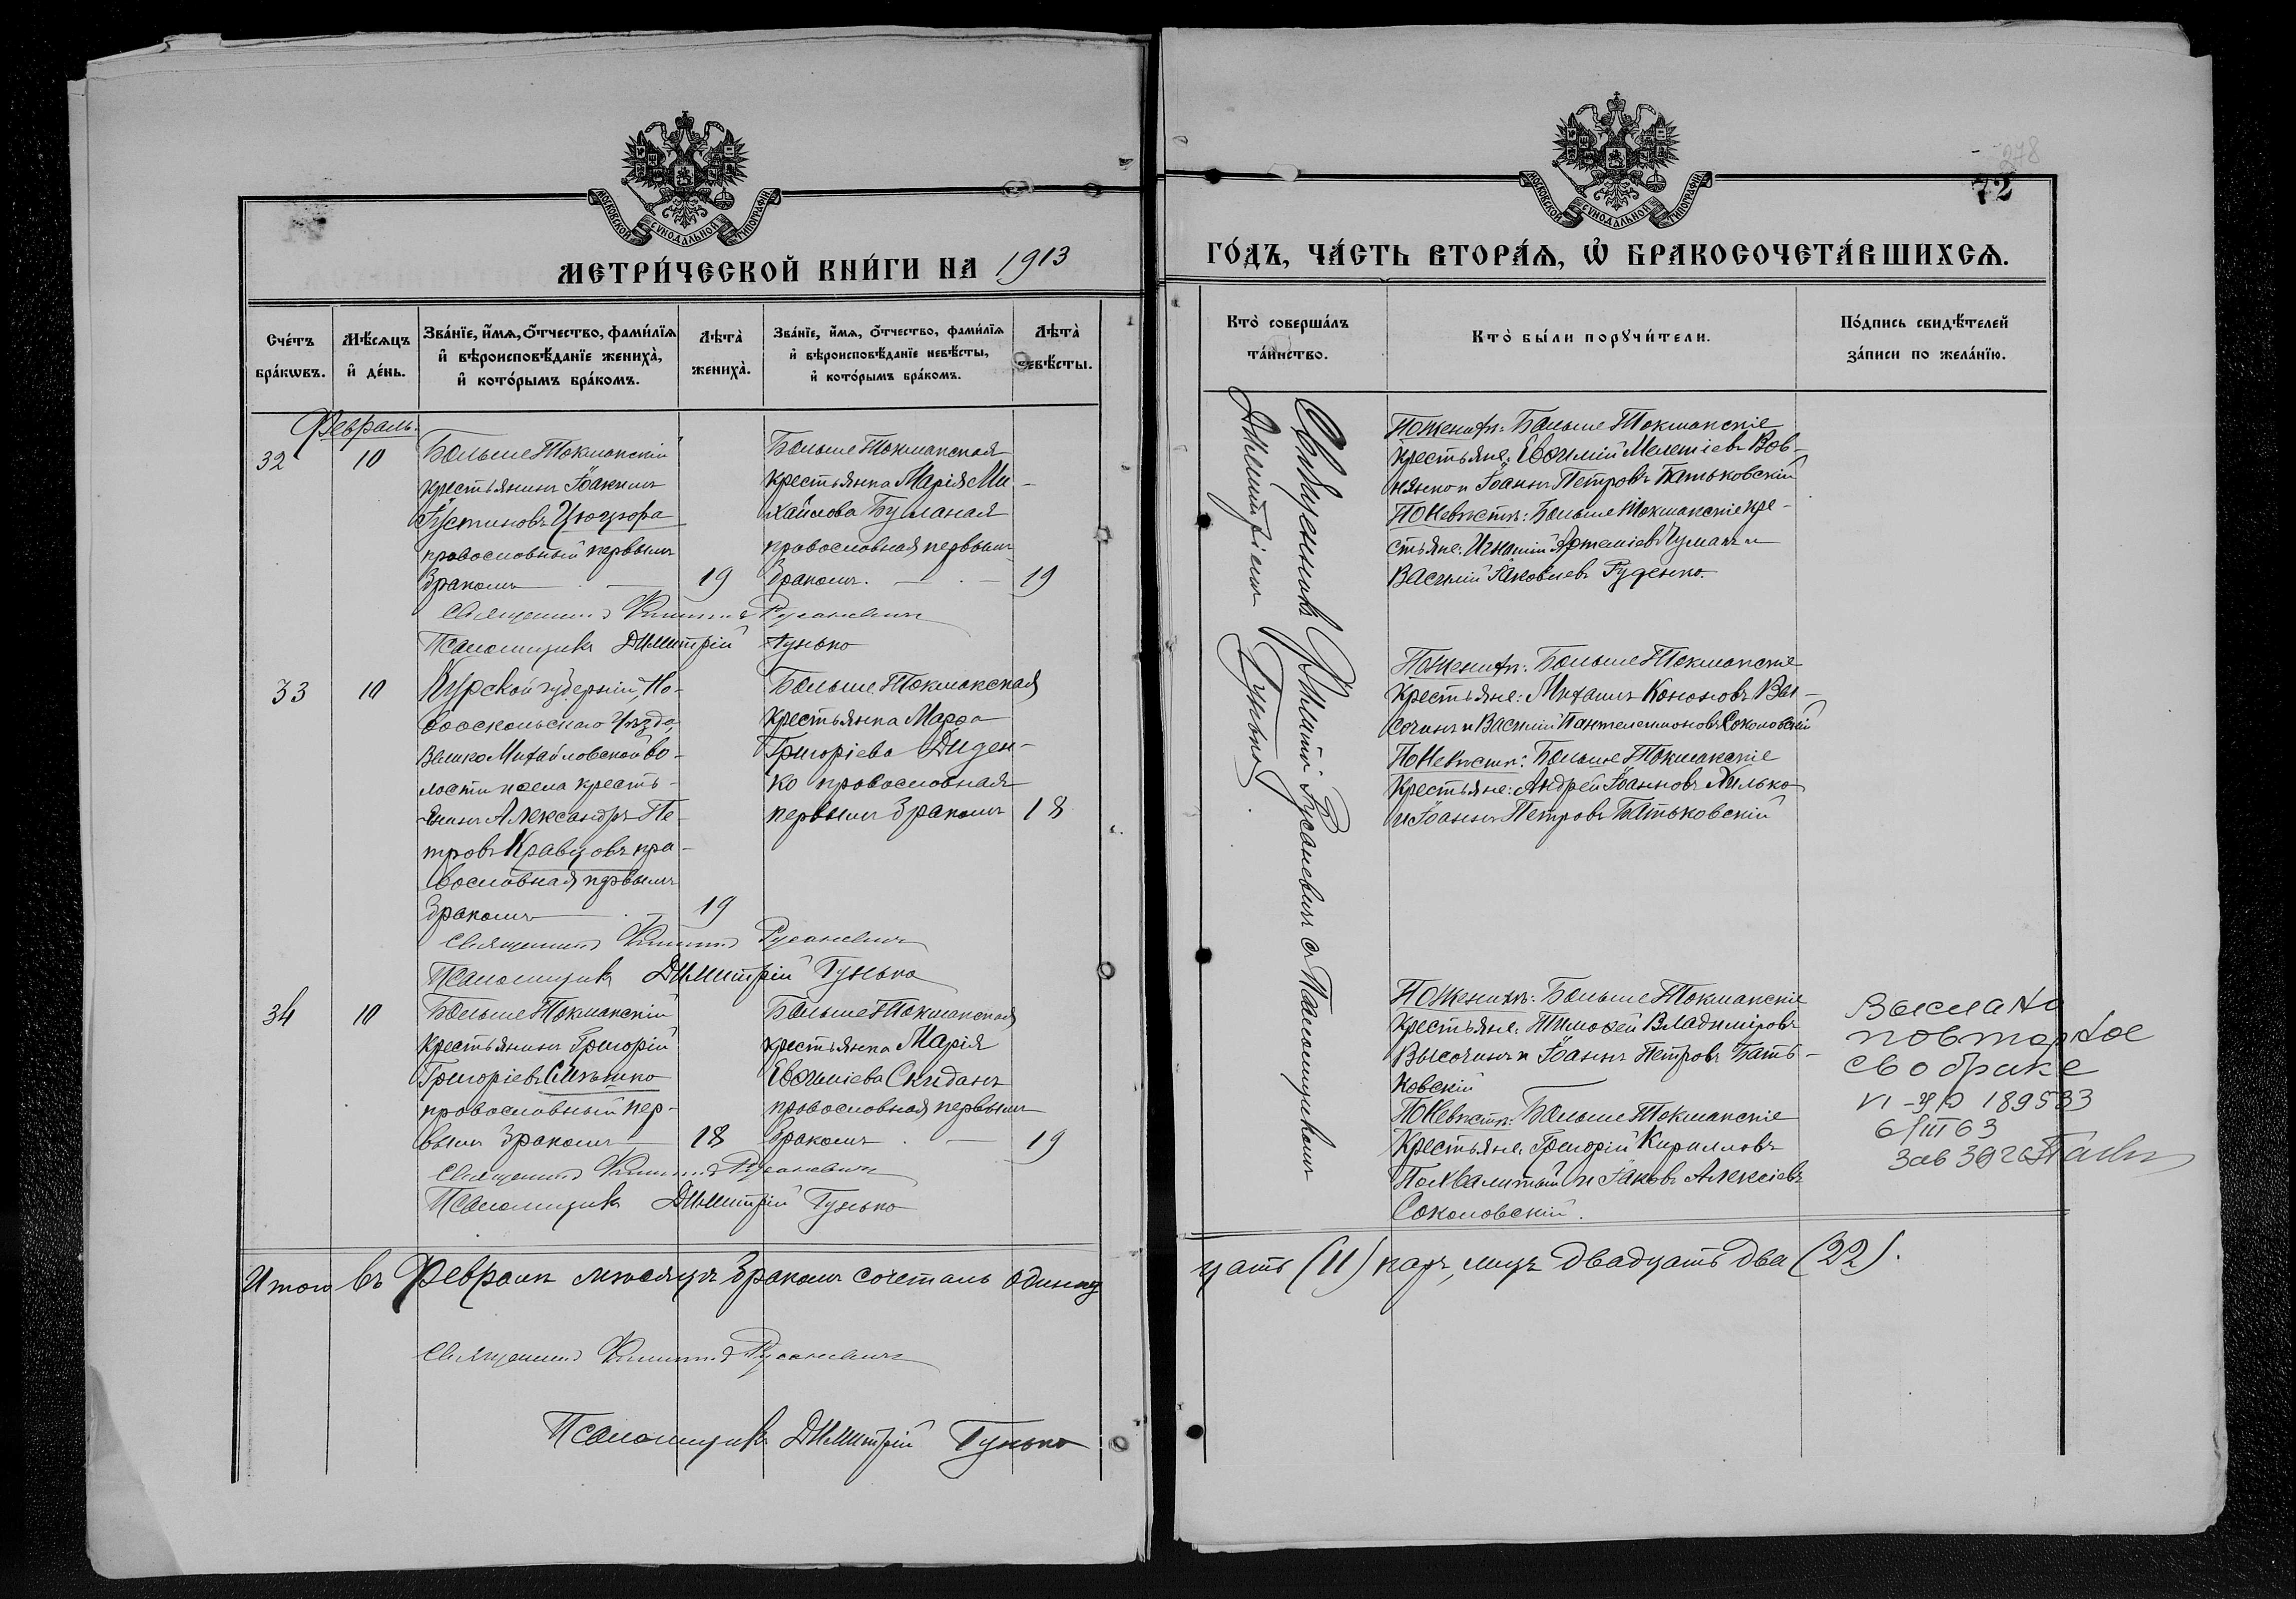 МОСКОВСКОЙ СѴНОДАЛЬНОЙ ТИПОГРАФІИ
МЕТРИ́ЧЕСКОЙ КНИ́ГИ НА 1913
Сче́тъ бра́кѡвъ.
Мѣ́сяцъ и҆ де́нь.
Зва́нїе, и҆́мѧ, ѻ҆́тчество, фами́лїѧ
и҆ вѣроисповѣ́данїе жениха̀,
и҆ кото́рымъ бра́комъ.
Лѣта̀ жениха̀.
Зва́нїе, и҆́мѧ, ѻ҆́тчество, фами́лїѧ
и҆ вѣроисповѣ́данїе невѣ́сты,
и҆ кото́рымъ бра́комъ.
Лѣта̀ невѣ́сты.
Февраль.
32
10
БольшеТокмакскій
крестьянинъ Іоакимъ
Іустиновъ Цюцюра
православный первымъ
бракомъ 19
БольшеТокмакская
крестьянка Марія Ми-
хайлова Буланая
православная первымъ
бракомъ. 19
Священникъ Филиппъ Русаневичъ
Псаломщикъ Димитрій Гунько
33
10
Курской губерніи, Но-
вооскольскаго уѣзда,
ВеликоМихайловской во-
лости и села кресть-
янинъ Александръ Пе-
тровъ Кравцовъ пра-
вославная первымъ
бракомъ 19
БольшеТокмакская
крестьянка Марѳа
Григоріева Диден-
ко православная
первымъ бракомъ 18
Священникъ Филиппъ Русаневичъ
Псаломщикъ Димитрій Гунько
34
10
БольшеТокмакскій
крестьянинъ Григорій
Григоріевъ Сѣнько
православный пер-
вымъ бракомъ 18
БольшеТокмакская
крестьянка Марія
Евѳиміева Скиданъ
православная первымъ
бракомъ 19
Священникъ Филиппъ Русаневичъ
Псаломщикъ Димитрій Гунько
Итого въ Февралѣ мѣсяцѣ бракомъ сочеталъ одиннад
Священникъ Филиппъ Русаневичъ
Псаломщикъ Димитрій Гунько
278
72
МОСКОВСКОЙ СѴНОДАЛЬНОЙ ТИПОГРАФІИ
ГО́ДЪ, ЧА́СТЬ ВТОРА́Ѧ, Ѡ҆ БРАКОСОЧЕТА́ВШИХСѦ.
Кто̀ соверша́лъ
та́инство.
Кто̀ бы́ли порꙋчи́тели.
По́дпись свидѣ́телей
за́писи по жела́нїю.
Священникъ Филиппъ Русаневичъ съ Псаломщикомъ
Димитріемъ Гунько.
По женихѣ: БольшеТокмакскіе
крестьяне: Евѳимій Мелетіевъ Вов-
нянко и Іоаннъ Петровъ Батьковскій
По невѣстѣ: БольшеТокмакскіе кре-
стьяне: Игнатій Артеміевъ Чумакъ и
Василій Іаковлевъ Руденко.
По женихѣ: БольшеТокмакскіе
крестьяне: Михаилъ Кононовъ Вы-
сочинъ и Василій Пантелеимоновъ Соколовскій
По невѣстѣ: БольшеТокмакскіе
крестьяне: Андрей Іоанновъ Хилько
и Іоаннъ Петровъ Батьковскій
По женихѣ: БольшеТокмакскіе
крестьяне: Тимоѳей Владиміровъ
Высочинъ и Іоаннъ Петровъ Бать-
ковскій
По невѣстѣ: БольшеТокмакскіе
крестьяне: Григорій Кирилловъ
Похвалитый и Іаковъ Алексіевъ
Соколовскій.
Выслано
повторное
св о браке
189533
6/III 63
Зав
цать (11) паръ, лицъ двадцать два (22).